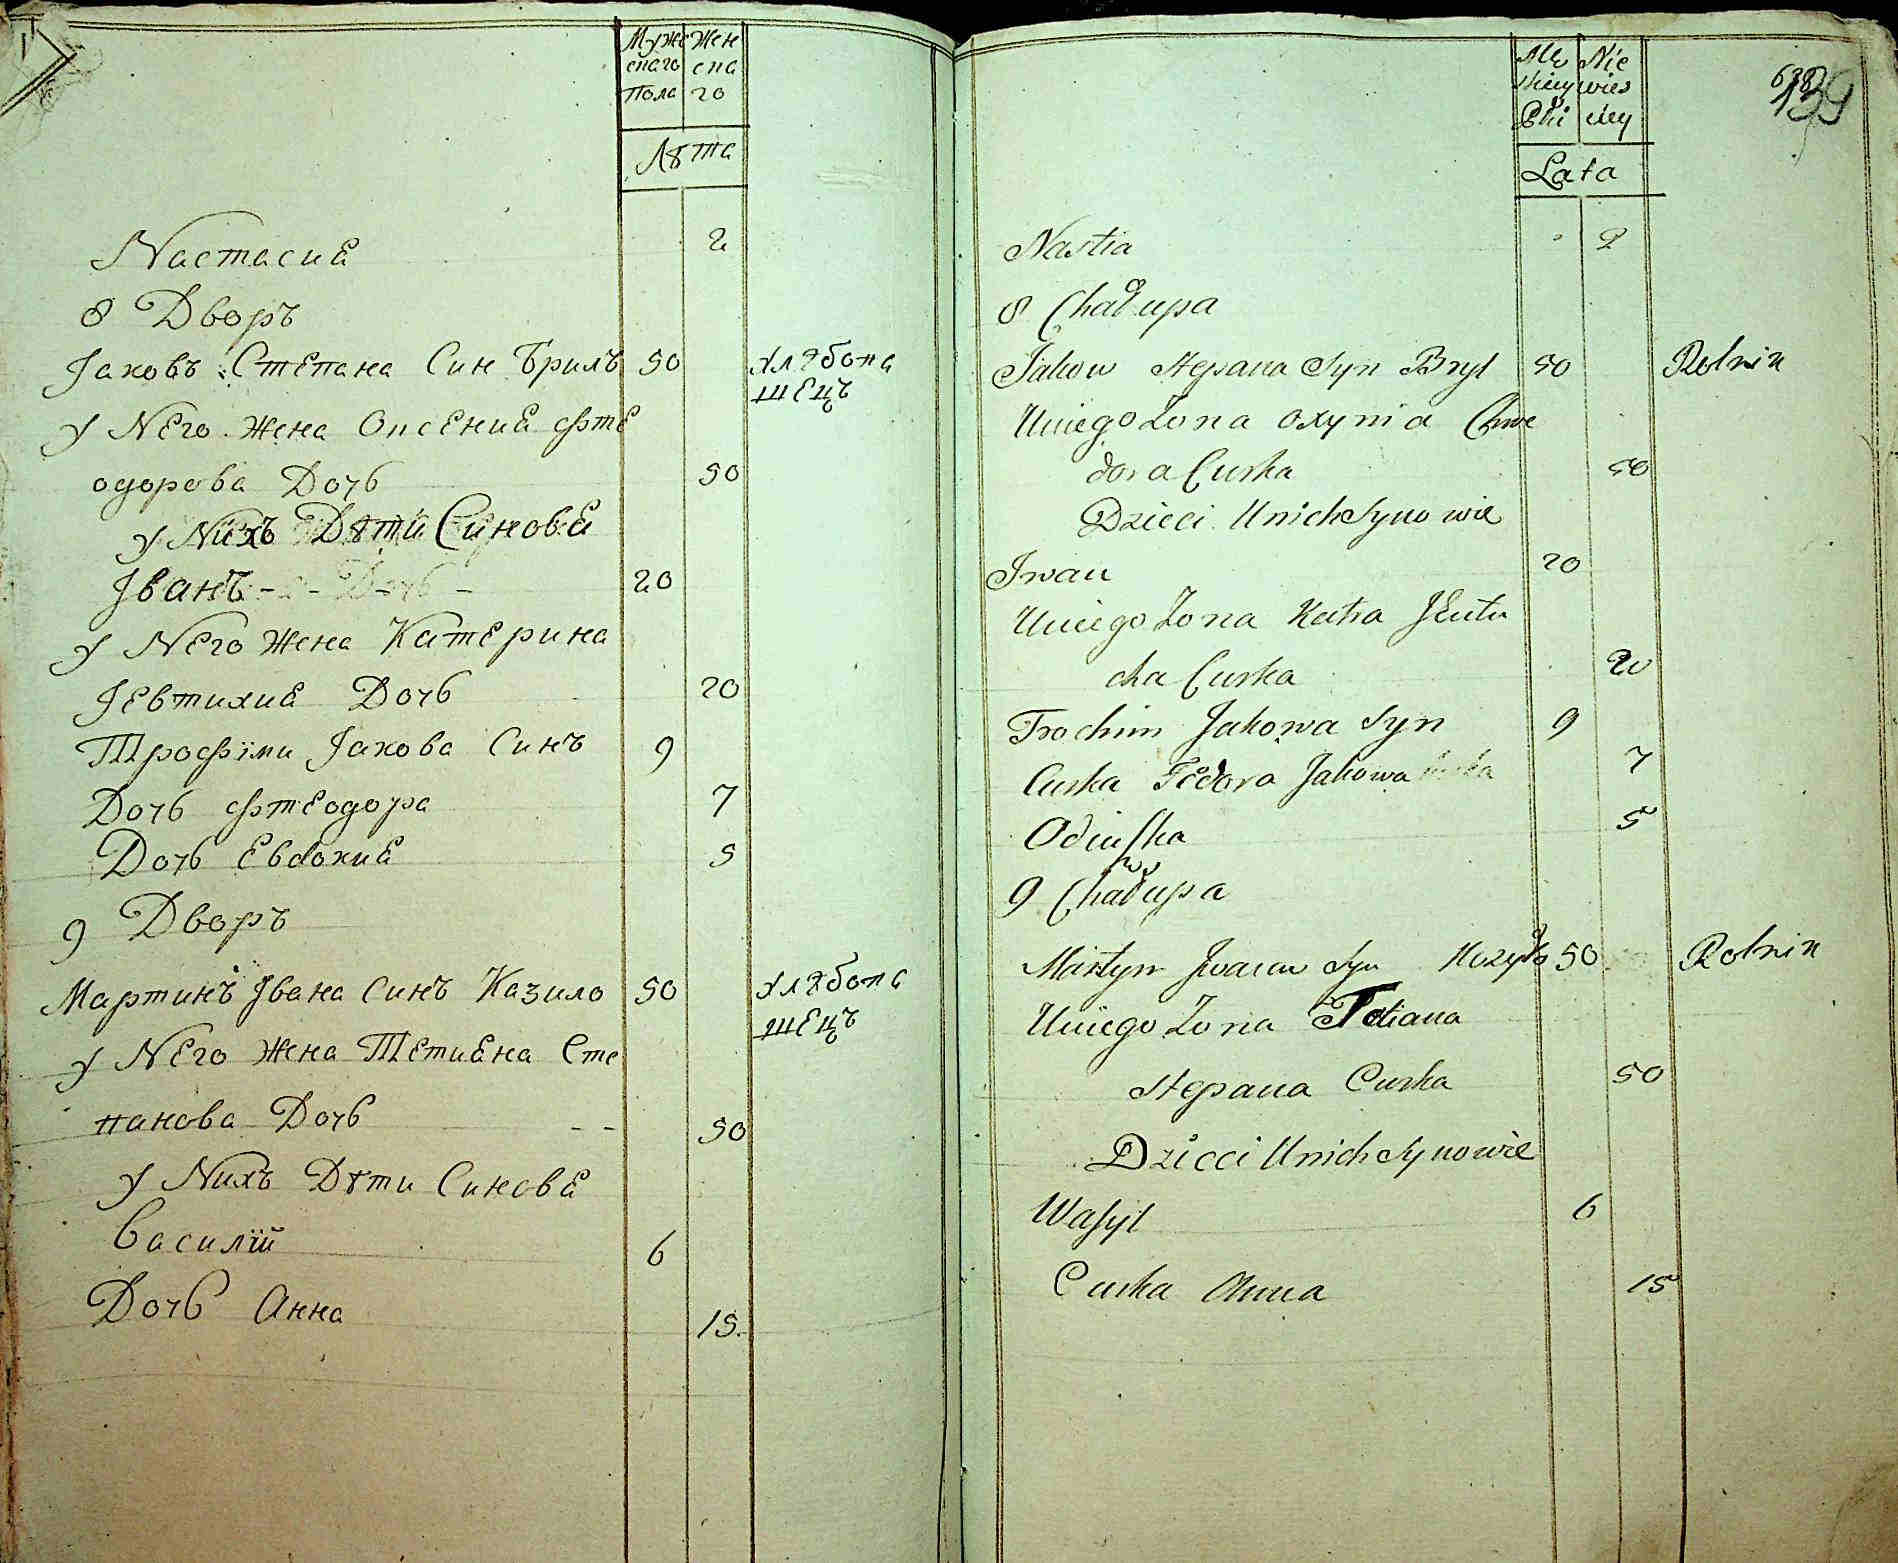 Муже Жен
скаго ска
Пола го
Лѣта
Nастасиѣ 2
8 Дворъ
Јаковъ Степана Син Бриль 50 Хлѣбопа
шецъ
у Nего Жена Ѯксениѣ Фте
одорова Дочь 50
у Nихъ Дѣти Синовѣ
Јванъ 20
у Nего Жена Катерина
Јевтихиѣ Дочь 20
Трофїми Јакова Синъ 9
Дочь Фтеодора 7
Дочь Евдокиѣ 5
9 Дворъ
Мартинъ Јвана Синъ Казило 50 Хлѣбопа
шецъ
у Nего Жена Тетиѣна Сте
панова Дочь 50
у Nихъ Дѣти Синовѣ
Василїй 6
Дочь Анна 15
139
Mę Nie
skiey wies
Płci ciey
Lata
Nastia 2
8 Chałupa
Jakow Stepana Syn Bryl 50 Rolnik
Uniego Żona Oxynia Chwe
dora Curka 50
Dzieci Unich Synowie
Iwan 20
Uniego Żona Katra Jeutu
cha Curka 20
Trochim Jakowa Syn 9
Curka Fedora Jakowa Curka 7
Odiuska 5
9 Chałupa
Martyn Jwana Syn Kozyło 50 Rolnik
Uniego Żona Tetiana
Stepana Curka 50
Dzieci Unich Synowie
Wasyl 6
Curka Anna 15